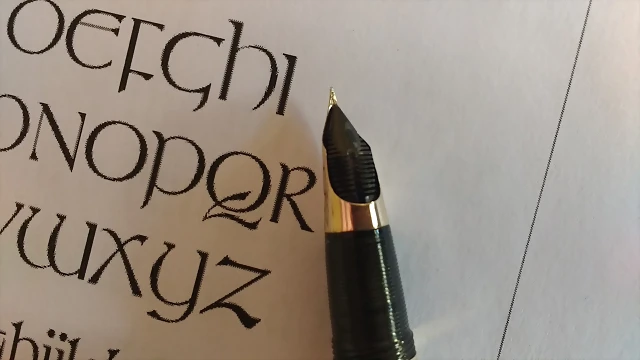 DEFGHI
NOPQR
WXYZ